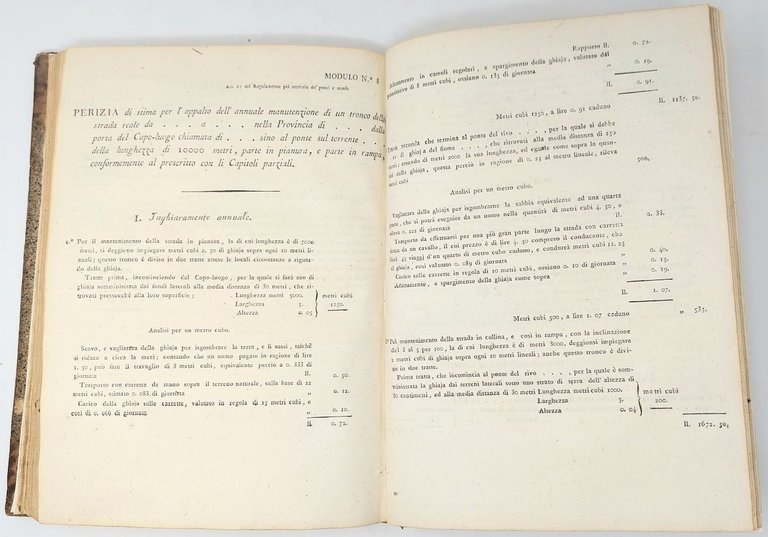 MODULO N.º 8
Art. 17 del Regolamento pel servizio de' ponti e strade
PERIZIA di stima per l'appalto dell'annuale manutenzione di un tronco della
strada reale da . . . . a . . . . nella Provincia di . . . . dalla
porta del Capo-luogo chiamata di . . . sino al ponte sul torrente
della lunghezza di 10000 metri, parte in pianura, e parte in rampa,
conformemente al prescritto con li Capitoli parziali.
I. Inghiaramente annuale.
1.º Per il mantenimento della strada in pianura, la di cui lunghezza è di 7000
metri, si deggiono impiegare metri cubi 2. 50 di ghiaja sopra ogni 10 metri li-
neali; questo tronco è diviso in due tratte attese le locali circostanze a riguar-
do della ghiaja.
Tratta prima, incominciando dal Capo-luogo, per la quale si farà uso di
ghiaja somministrata dai fondi laterali alla media distanza di 30 metri, che ri-
trovasi pressochè alla loro superficie; . Lunghezza metri 5000. metri cubi
Larghezza . . 5. 1250.
Altezza . . 0. 05
Analisi per un metro cubo.
Scavo, e vagliatura della ghiaja per isgombrare la terra, e li sassi, talchè
si riduce a circa la metà; contando che un uomo pagato in ragione di lire
1. 50, può fare il travaglio di 3 metri cubi, equivalente perciò a 0. 333 di
giornata ll. 0. 50.
Trasporto con carretta da mano sopra il terreno naturale, sulla base di 12
metri cubi, stimato 0. 083 di giornata " 0. 12.
Carico della ghiaja sulle carrette, valutato in regola di 15 metri cubi, e
così di 0. 066 di giornata " 0. 10.
ll. 0. 72.
Rapporto ll. 0. 72.
Adattamento in cumoli regolari, e spargimento della ghiaja, valutato dal
quantitativo di 8 metri cubi, ossiano 0. 125 di giornata " 0. 19.
0. 91.
Metri cubi 1250, a lire 0. 91 caduno ll. 1137. 50.
Tratta seconda che termina al ponte del rivo . . . . , per la quale si dabbu
di ghiaja del fiume . . . . , che ritrovasi alla media distanza di 250
metri; essendo di metri 2000 la sua lunghezza, ed eguale come sopra la quan-
tità della ghiaja, questa perciò in ragione di 0. 25 al metro lineale, rileva
metri cubi 500,
Analisi per un metro cubo.
Vagliatura della ghiaja per isgombrarne la sabbia equivalente ad una quarta
parte, che si potrà eseguire da un uomo nella quantità di metri cubi 4. 50, e
rileva 0. 222 di giornata ll. 0. 33.
Trasporto da effettuarsi per una più gran parte lungo la strada con carretta
tirata da un cavallo, il cui prezzo è di lire 4. 50 compreso il conducente, che
farà 45 viaggi d'un quarto di metro cubo caduno, e condurrà metri cubi 11. 25
di ghiaja, così valutato 0. 089 di giornata " 0. 40.
Carico sulle carrette in regola di 10 metri cubi, ossiano 0. 10 di giornata " 0. 15.
Adattamento, e spargimento della ghiaja come sopra " 0. 19.
ll. 1. 07.
Metri cubi 500, a lire 1. 07 caduno " 535.
Pel mantenimento della strada in collina, e così in rampa, con la inclinazione
del 3 al 5 per 100, la di cui lunghezza è di metri 3000, deggionsi impiegare
2 metri cubi di ghiaja sopra ogni 10 metri lineali; anche questo tronco è divi-
so in due tratte.
Prima tratta, che incomincia al ponte del rivo . . . . , per la quale è som-
ministrata la ghiaja dai terreni laterali sotto uno strato di terra dell'altezza di
30 centimetri, ed alla media distanza di 30 metri Lunghezza metri 1000. metri cubi
Larghezza 5. 200.
Altezza 0. 04
ll. 1672. 50,